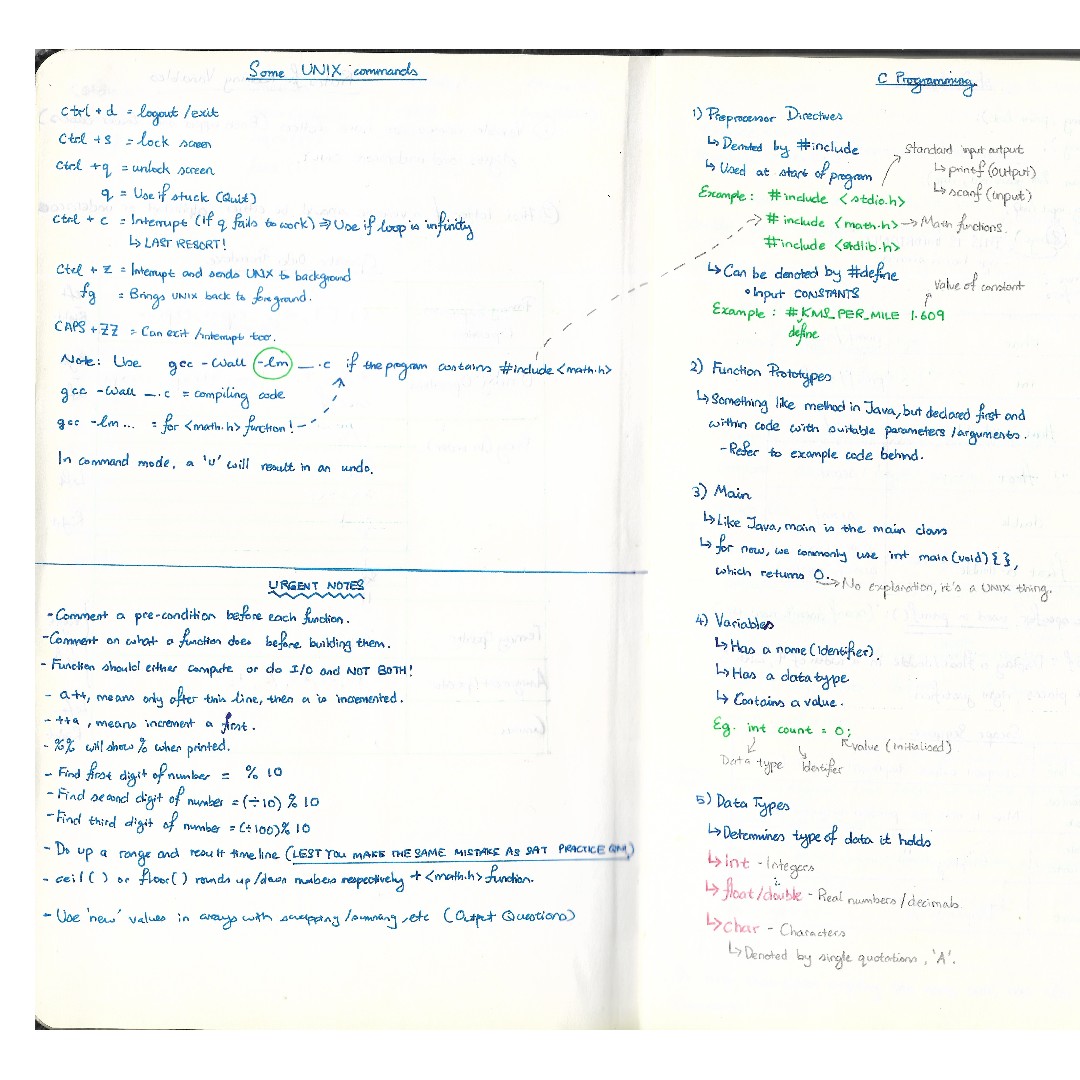 Some UNIX commands
Ctrl + d = logout / exit
Ctrl + s = lock screen
Ctrl + q = unlock screen
q = Use if stuck (Quit)
Ctrl + c = Interrupt (If q fails to work) ⇒ Use if loop is infinity
↳ LAST RESORT!
Ctrl + z = Interrupt and sends UNIX to background
fg = Brings UNIX back to foreground.
CAPS + ZZ = Can exit / interrupt too.
Note: Use gcc -Wall -lm __.c if the program contains #include <math.h>
gcc -Wall __.c = compiling code
gcc -lm ... = for <math.h> function!
In command mode, a 'u' will result in an undo.
URGENT NOTES
- Comment a pre-condition before each function.
- Comment on what a function does before building them.
- Function should either compute or do I/O and NOT BOTH!
- a++, means only after this line, then a is incremented.
- ++a, means increment a first.
- %% will show % when printed.
- Find first digit of number = % 10
- Find second digit of number = (÷10) % 10
- Find third digit of number = (÷100) % 10
- Do up a range and result timeline (LEST YOU MAKE THE SAME MISTAKE AS SAT PRACTICE QN)
- ceil() or floor() rounds up/down numbers respectively + <math.h> function.
- Use 'new' values in arrays with swapping / summing, etc (Output Questions)
C Programming
1) Preprocessor Directives
↳ Denoted by #include
↳ Used at start of program
Standard input output
↳ printf (output)
↳ scanf (input)
Example: #include <stdio.h>
#include <math.h> → Math functions.
#include <stdlib.h>
↳ Can be denoted by #define
• Input CONSTANTS
Value of constant
Example: # KMS_PER_MILE 1.609
define
2) Function Prototypes
↳ Something like method in Java, but declared first and
within code with suitable parameters / arguments.
- Refer to example code behind.
3) Main
↳ Like Java, main is the main class
↳ for now, we commonly use int main (void) { },
which returns 0. → No explanation, it's a UNIX thing.
4) Variables
↳ Has a name (identifier)
↳ Has a data type
↳ Contains a value.
Eg. int count = 0;
value (initialised)
Data type Identifer
5) Data Types
↳ Determines type of data it holds
↳ int - Integers
↳ float / double - Real numbers / decimals
↳ char - Characters
↳ Denoted by single quotations, 'A'.